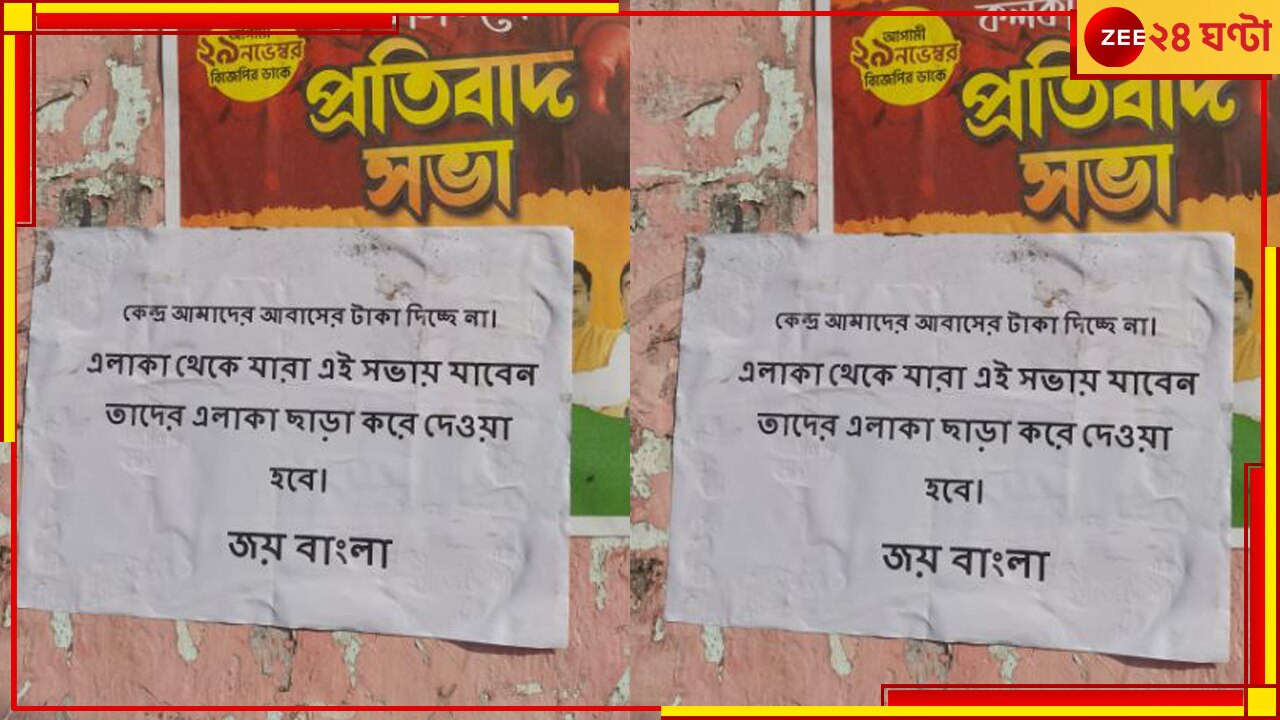 আগামী
২৯ নভেম্বর
বিজেপির ডাকে
প্রতিবাদ
সভা
কেন্দ্র আমাদের আবাসের টাকা দিচ্ছে না।
এলাকা থেকে যারা এই সভায় যাবেন
তাদের এলাকা ছাড়া করে দেওয়া
হবে।
জয় বাংলা
আগামী
২৯ নভেম্বর
বিজেপির ডাকে
প্রতিবাদ
সভা
কেন্দ্র আমাদের আবাসের টাকা দিচ্ছে না।
এলাকা থেকে যারা এই সভায় যাবেন
তাদের এলাকা ছাড়া করে দেওয়া
হবে।
জয় বাংলা
ZEE ২৪ ঘণ্টা